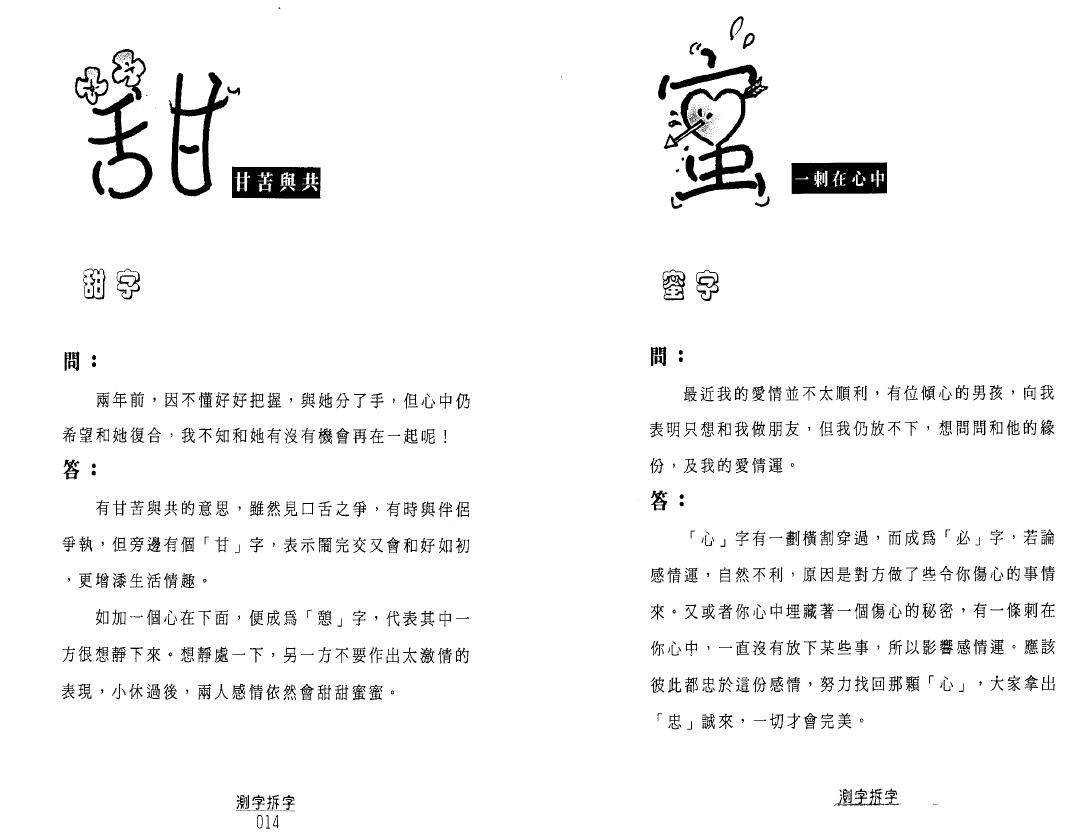 甜
甘苦與共
甜字
問：
兩年前，因不懂好好把握，與她分了手，但心中仍
希望和她復合，我不知和她有沒有機會再在一起呢！
答：
有甘苦與共的意思，雖然見口舌之爭，有時與伴侶
爭執，但旁邊有個「甘」字，表示鬧完交又會和好如初
，更增漆生活情趣。
如加一個心在下面，便成爲「憩」字，代表其中一
方很想靜下來。想靜處一下，另一方不要作出太激情的
表現，小休過後，兩人感情依然會甜甜蜜蜜。
測字拆字
014
蜜
一刺在心中
蜜字
問：
最近我的愛情並不太順利，有位傾心的男孩，向我
表明只想和我做朋友，但我仍放不下，想問問和他的緣
份，及我的愛情運。
答：
「心」字有一劃橫割穿過，而成爲「必」字，若論
感情運，自然不利，原因是對方做了些令你傷心的事情
來。又或者你心中埋藏著一個傷心的秘密，有一條刺在
你心中，一直沒有放下某些事，所以影響感情運。應該
彼此都忠於這份感情，努力找回那顆「心」，大家拿出
「忠」誠來，一切才會完美。
測字拆字